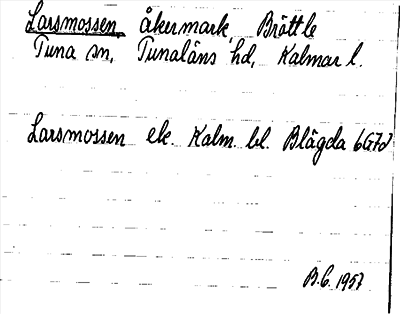 Larsmossen åkermark, Bråttle
Tuna sn, Tunaläns hd, Kalmar l.
Larsmossen ek. Kalm. bl. Blägda 6G7d
B.C. 1957